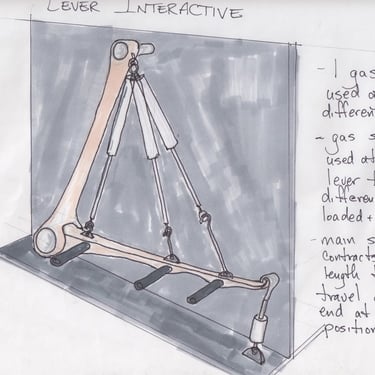 LEVER INTERACTIVE
- 1 gas
used a
differen
- gas s
used at
lever t
differen
loaded +
- main s
contracts
length t
travel
end at
position